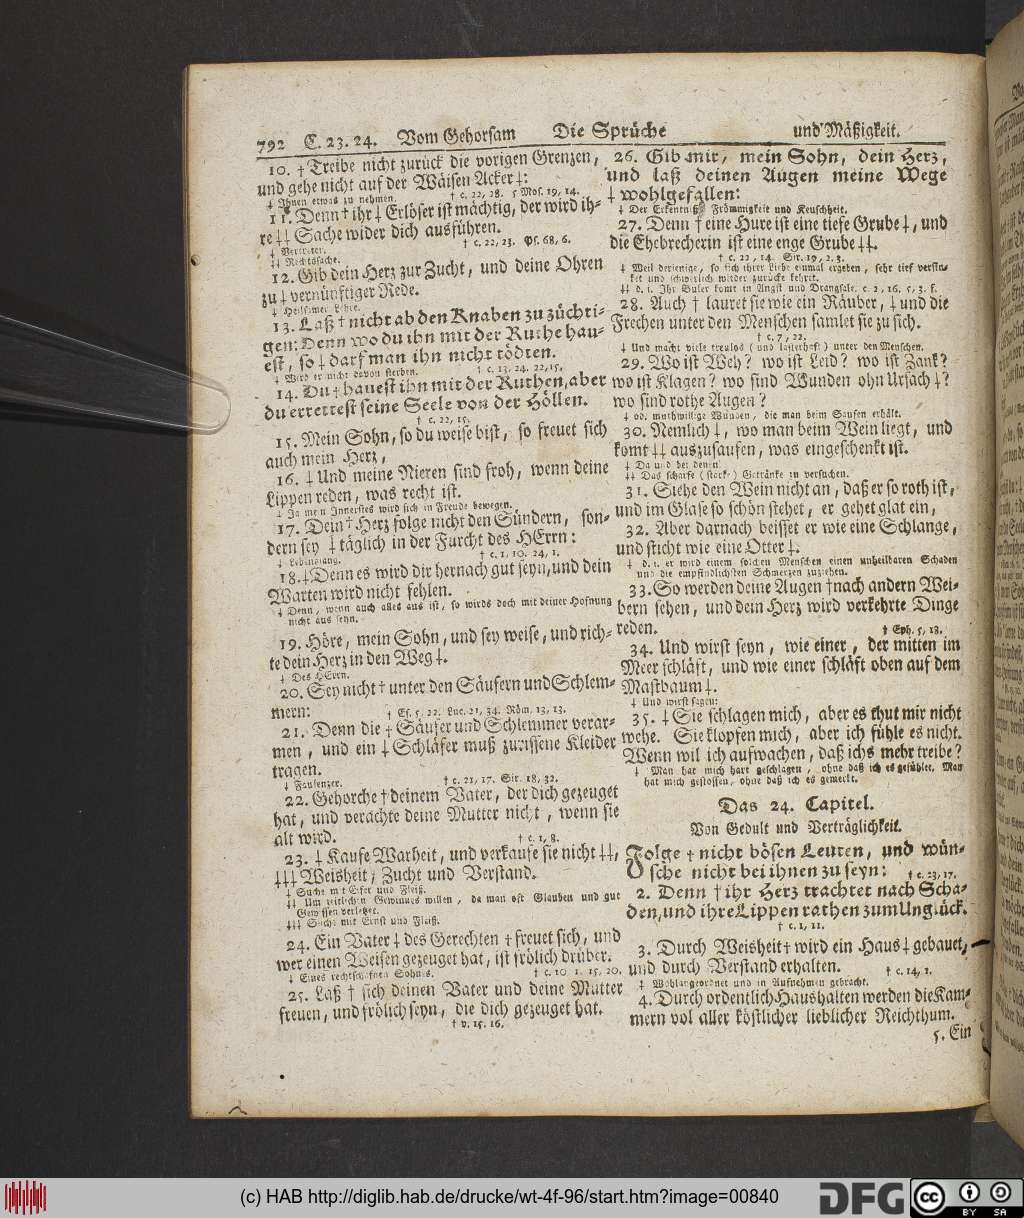 792 C. 23. 24. Vom Gehorsam Die Sprüche und Mäßigkeit.
10. † Treibe nicht zurück die vorigen Grenzen,
und gehe nicht auf der Wäisen Acker ‡:
‡ Ihnen etwas zu nehmen. † c. 22, 28. 5 Mos. 19, 14.
11. Denn † ihr ‡ Erlöser ist mächtig, der wird ih-
re ‡‡ Sache wider dich ausführen.
‡ Vertreter. † c. 22, 23. Ps. 68, 6.
‡‡ Rechtssache.
12. Gib dein Herz zur Zucht, und deine Ohren
zu ‡ vernünftiger Rede.
‡ Heilsamer Lehre.
13. Laß † nicht ab den Knaben zu züchti-
gen: Denn wo du ihn mit der Ruthe hau-
est, so ‡ darf man ihn nicht tödten.
‡ Wird er nicht davon sterben. † c. 13, 24. 22, 15.
14. Du † hauest ihn mit der Ruthen, aber
du errettest seine Seele von der Höllen.
† c. 22, 15.
15. Mein Sohn, so du weise bist, so freuet sich
auch mein Herz,
16. ‡ Und meine Nieren sind froh, wenn deine
Lippen reden, was recht ist.
‡ Ja mein Innerstes wird sich in Freude bewegen.
17. Dein † Herz folge nicht den Sündern, son-
dern sey ‡ täglich in der Furcht des HErrn:
‡ Lebenslang. † c. 1, 10. 24, 1.
18. ‡ Denn es wird dir hernach gut seyn, und dein
Warten wird nicht fehlen.
‡ Denn, wenn auch alles aus ist, so wirds doch mit deiner Hofnung
nicht aus seyn.
19. Höre, mein Sohn, und sey weise, und rich-
te dein Herz in den Weg ‡.
‡ Des HErrn.
20. Sey nicht † unter den Säufern und Schlem-
mern: † Es. 5, 22. Luc. 21, 34. Röm. 13, 13.
21. Denn die † Säufer und Schlemmer verar-
men, und ein ‡ Schläfer muß zurissene Kleider
tragen.
‡ Faulenzer. † c. 21, 17. Sir. 18, 32.
22. Gehorche † deinem Vater, der dich gezeuget
hat, und verachte deine Mutter nicht, wenn sie
alt wird. † c. 1, 8.
23. ‡ Kaufe Warheit, und verkaufe sie nicht ‡‡,
‡‡‡ Weisheit, Zucht und Verstand.
‡ Suche mit Eifer und Fleiß.
‡‡ Um zeitlichen Gewinnes willen, da man oft Glauben und gut
Gewissen verletzet.
‡‡‡ Suche mit Ernst und Fleiß.
24. Ein Vater ‡ des Gerechten † freuet sich, und
wer einen Weisen gezeuget hat, ist frölich drüber.
‡ Eines rechtschafnen Sohnes. † c. 10, 1. 15, 20.
25. Laß † sich deinen Vater und deine Mutter
freuen, und frölich seyn, die dich gezeuget hat.
† v. 15. 16.
26. Gib mir, mein Sohn, dein Herz,
und laß deinen Augen meine Wege
‡ wohlgefallen:
‡ Der Erkentniß, Frömmigkeit und Keuschheit.
27. Denn † eine Hure ist eine tiefe Grube ‡, und
die Ehebrecherin ist eine enge Grube ‡‡.
† c. 22, 14. Sir. 19, 2. 3.
‡ Weil derjenige, so sich ihrer Liebe einmal ergeben, sehr tief versin-
ket und schwerlich wieder zurücke kehret.
‡‡ d. i. Ihr Buler komt in Angst und Drangsale. c. 2, 16. 5, 3. f.
28. Auch † lauret sie wie ein Räuber, ‡ und die
Frechen unter den Menschen samlet sie zu sich.
† c. 7, 22.
‡ Und macht viele treulos (und lasterhaft) unter den Menschen.
29. Wo ist Weh? wo ist Leid? wo ist Zank?
wo ist Klagen? wo sind Wunden ohn Ursach ‡?
wo sind rothe Augen?
‡ od. muthwillige Wunden, die man beim Saufen erhält.
30. Nemlich ‡, wo man beim Wein liegt, und
komt ‡‡ auszusaufen, was eingeschenkt ist.
‡ Da und bei denen
‡‡ Das scharfe (starke) Getränke zu versuchen.
31. Siehe den Wein nicht an, daß er so roth ist,
und im Glase so schön stehet, er gehet glat ein,
32. Aber darnach beisset er wie eine Schlange,
und sticht wie eine Otter ‡.
‡ d. i. er wird einem solchen Menschen einen unheilbaren Schaden
und die empfindlichsten Schmerzen zuziehen.
33. So werden deine Augen † nach andern Wei-
bern sehen, und dein Herz wird verkehrte Dinge
reden. † Eph. 5, 18.
34. Und wirst seyn, wie einer, der mitten im
Meer schläft, und wie einer schläft oben auf dem
Mastbaum ‡.
‡ Und wirst sagen:
35. ‡ Sie schlagen mich, aber es thut mir nicht
wehe. Sie klopfen mich, aber ich fühle es nicht.
Wenn wil ich aufwachen, daß ichs mehr treibe?
‡ Man hat mich hart geschlagen, ohne daß ich es gefühlet. Man
hat mich gestossen, ohne daß ich es gemerkt.
Das 24. Capitel.
Von Gedult und Verträglichkeit.
Folge † nicht bösen Leuten, und wün-
sche nicht bei ihnen zu seyn: † c. 23, 17.
2. Denn † ihr Herz trachtet nach Scha-
den, und ihre Lippen rathen zum Unglück.
† c. 1, 11.
3. Durch Weisheit † wird ein Haus ‡ gebauet,
und durch Verstand erhalten. † c. 14, 1.
‡ Wohlangeordnet und in Aufnehmen gebracht.
4. Durch ordentlich Haushalten werden die Kam-
mern vol aller köstlicher lieblicher Reichthum.
5. Ein
(c) HAB http://diglib.hab.de/drucke/wt-4f-96/start.htm?image=00840
DFG
cc BY SA